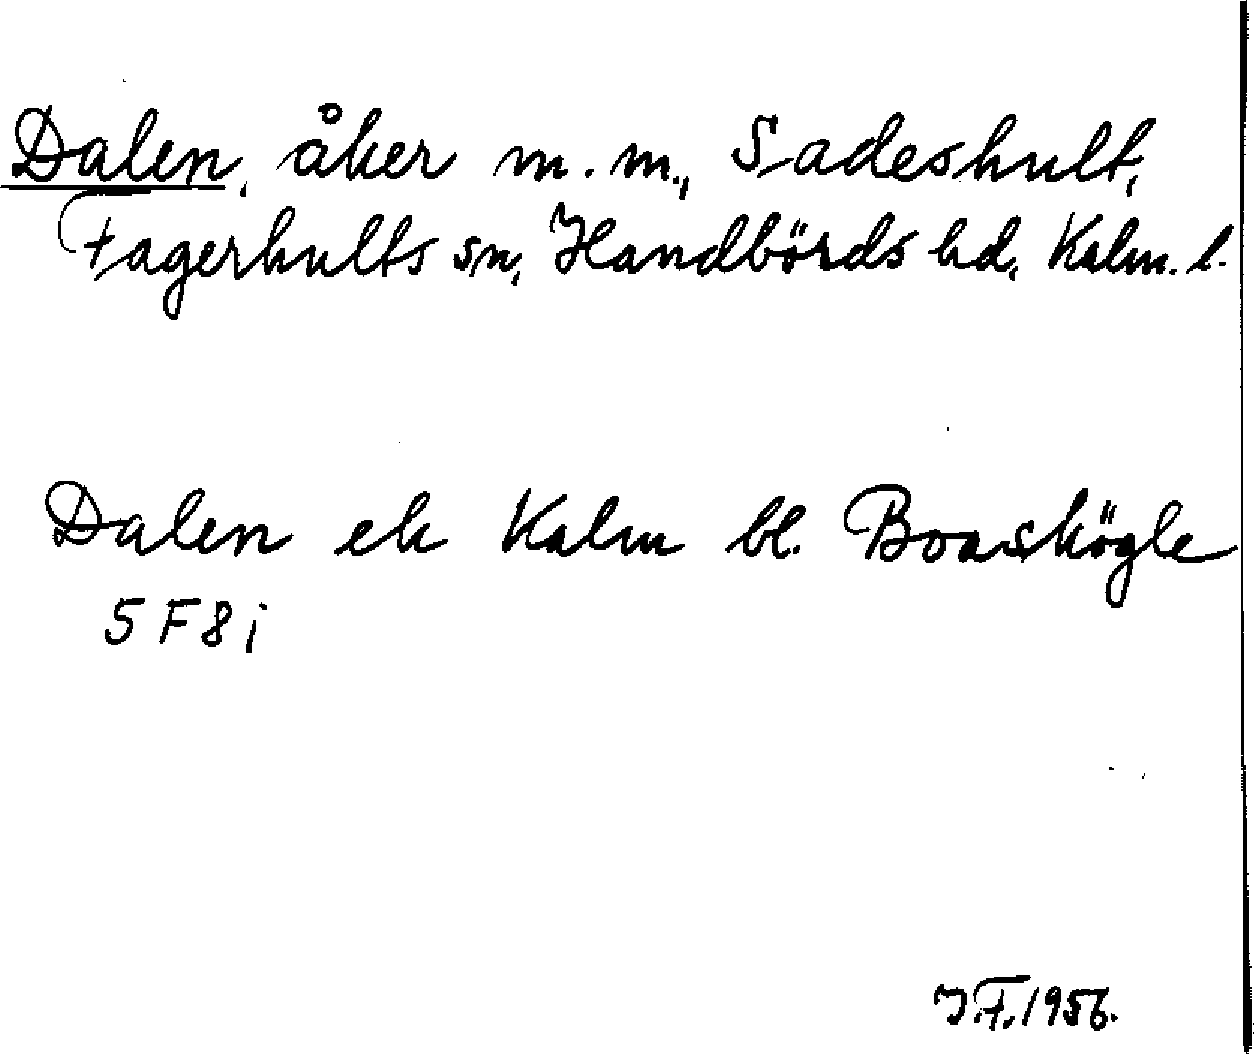 Dalen, åker m.m., Sadeshult,
Fagerhults sn, Handbörds hd, Kalm. l.
Dalen ek Kalm bl. Boaskögle
5 F 8 i
J.F. 1956.